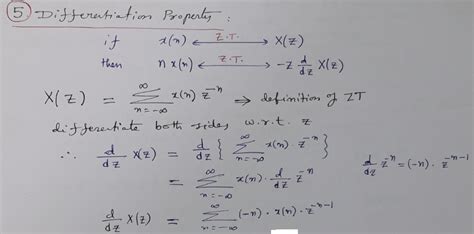 ⑤ Differentiation Property :
if x(n) ⟷ Z.T. X(z)
then n x(n) ⟷ Z.T. -z d/dz X(z)
X(z) = ∑_{n=-∞}^{∞} x(n) z^{-n} → definition of ZT
differentiate both sides w.r.t. z
∴ d/dz X(z) = d/dz { ∑_{n=-∞}^{∞} x(n). z^{-n} }
= ∑_{n=-∞}^{∞} x(n). d/dz z^{-n} d/dz z^{-n} = (-n). z^{-n-1}
d/dz X(z) = ∑_{n=-∞}^{∞} (-n). x(n). z^{-n-1}